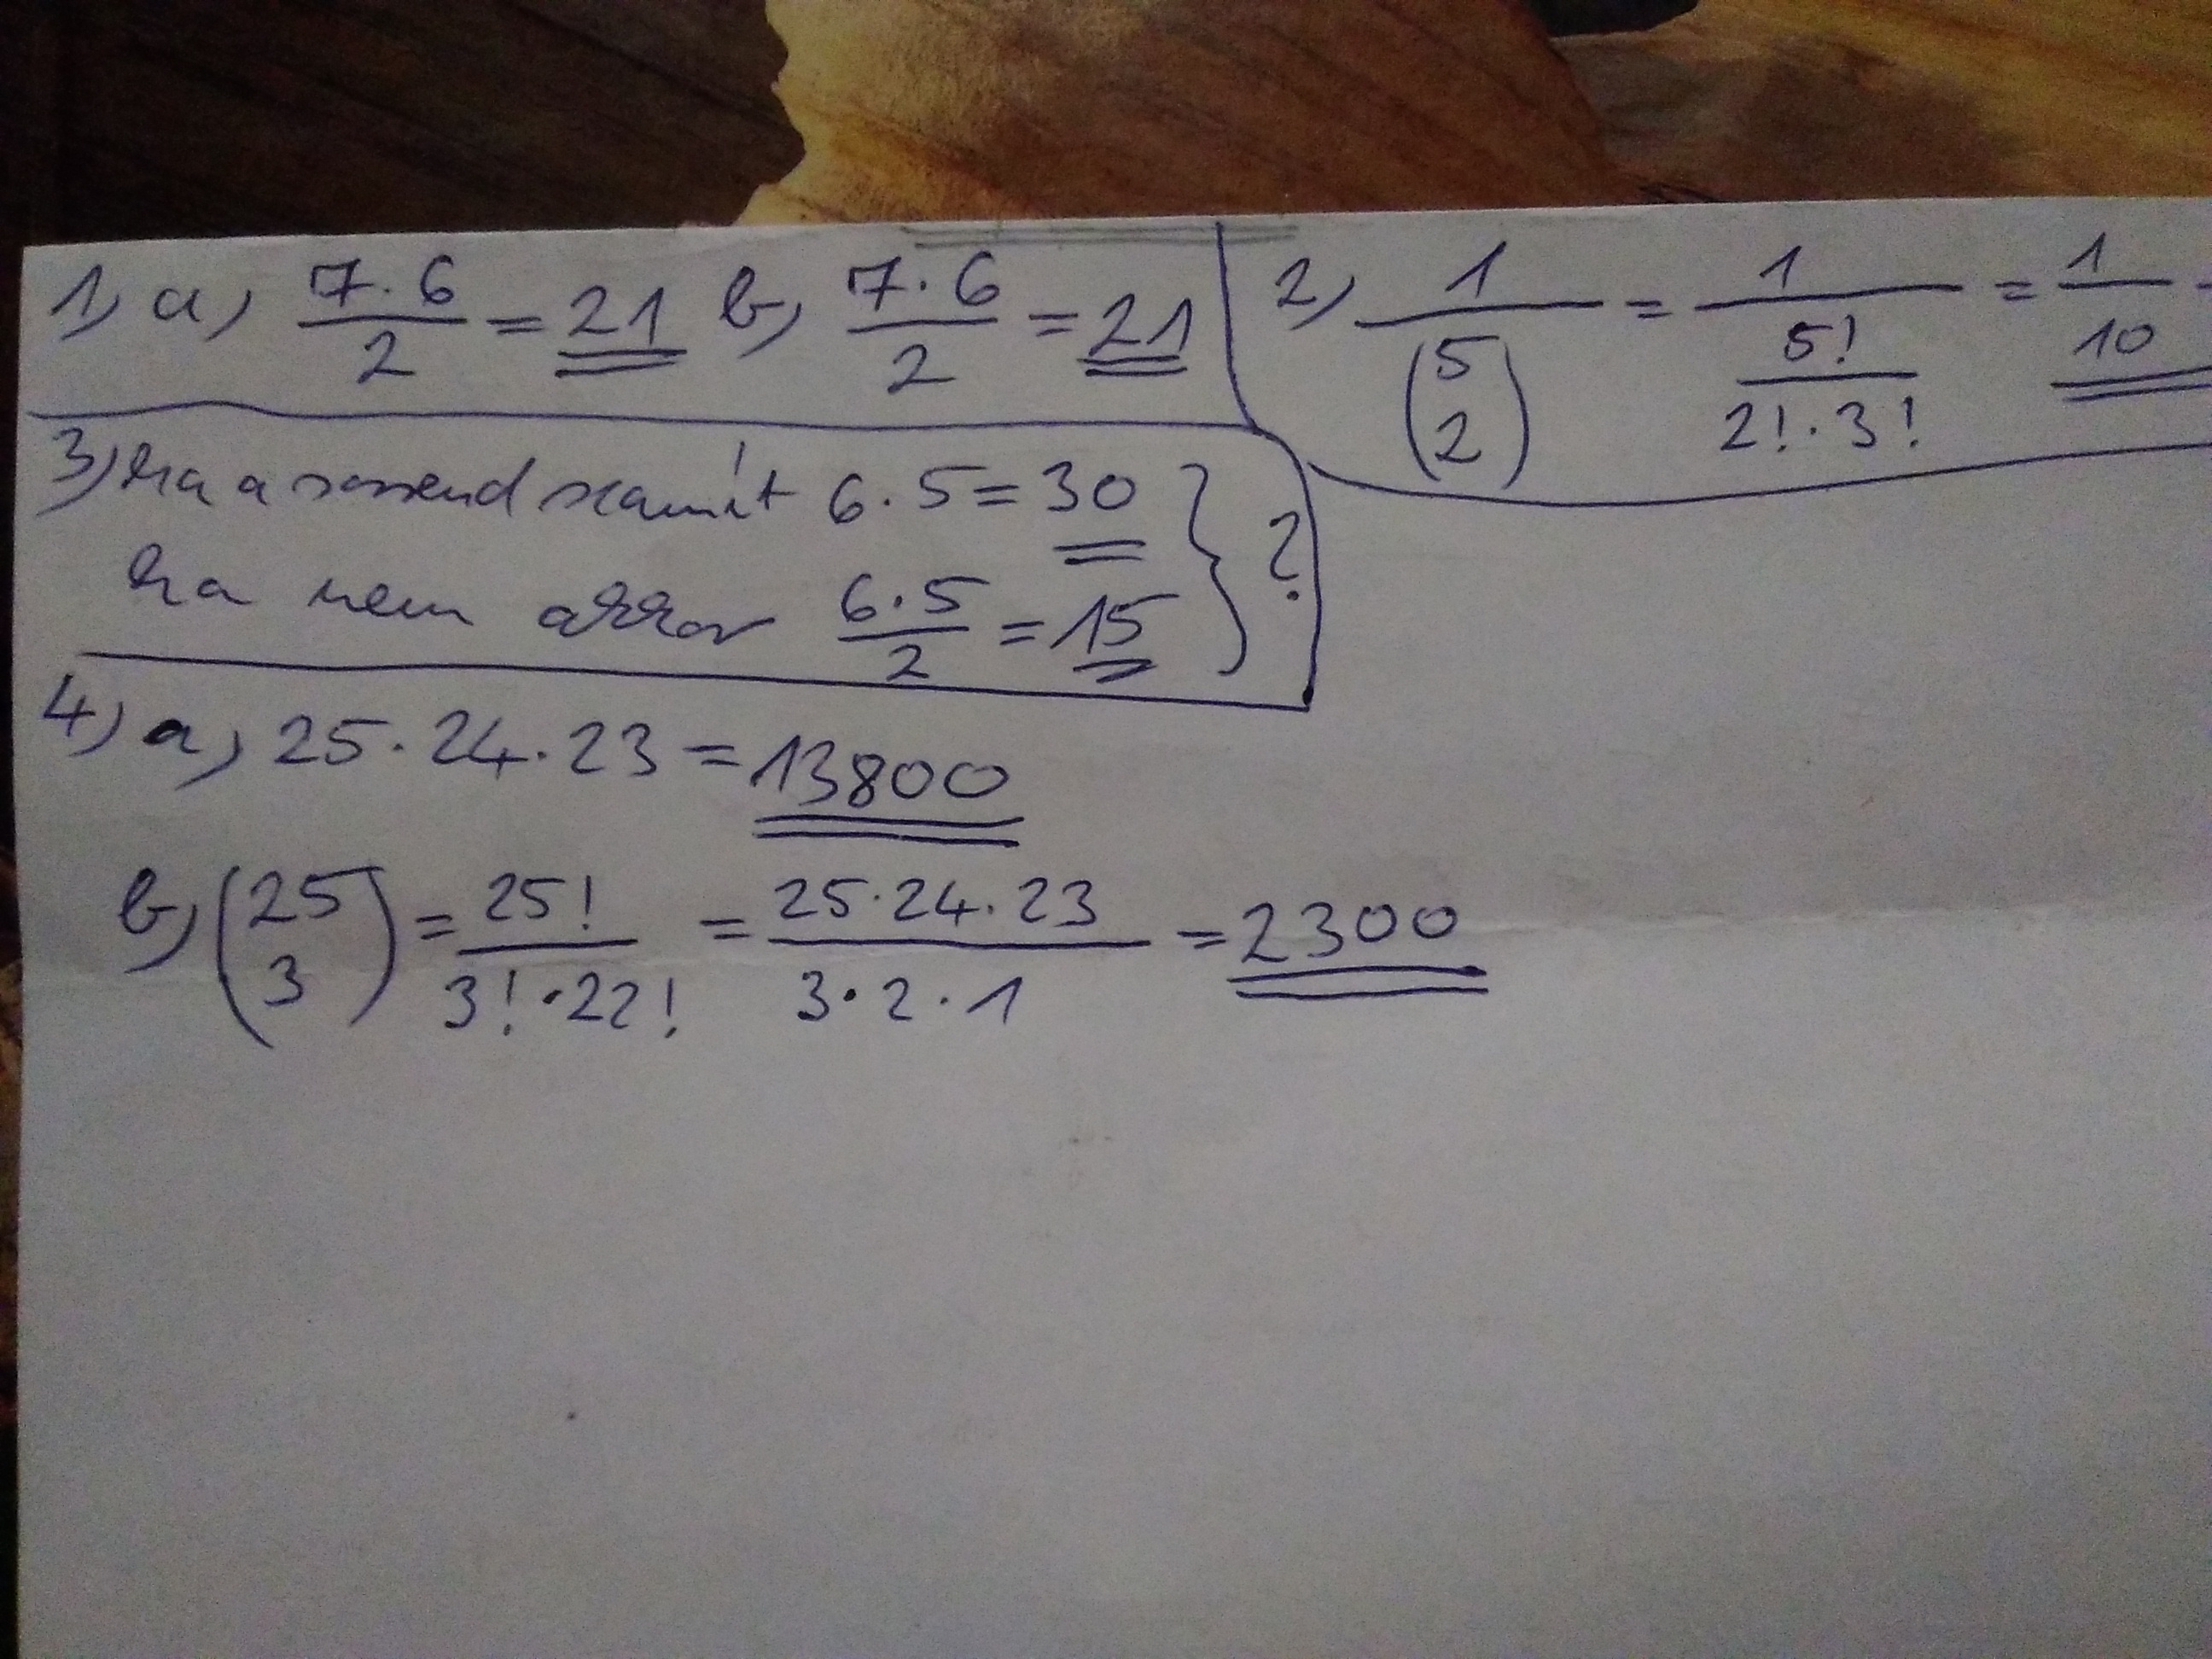 1) a) 7·6/2 = 21 b) 7·6/2 = 21
2) 1/(5 2) = 1/(5!/(2!·3!)) = 1/10
3) ha a sorrend számít 6·5 = 30
ha nem akkor 6·5/2 = 15 } ?
4) a) 25·24·23 = 13800
b) (25 3) = 25!/(3!·22!) = 25·24·23/(3·2·1) = 2300